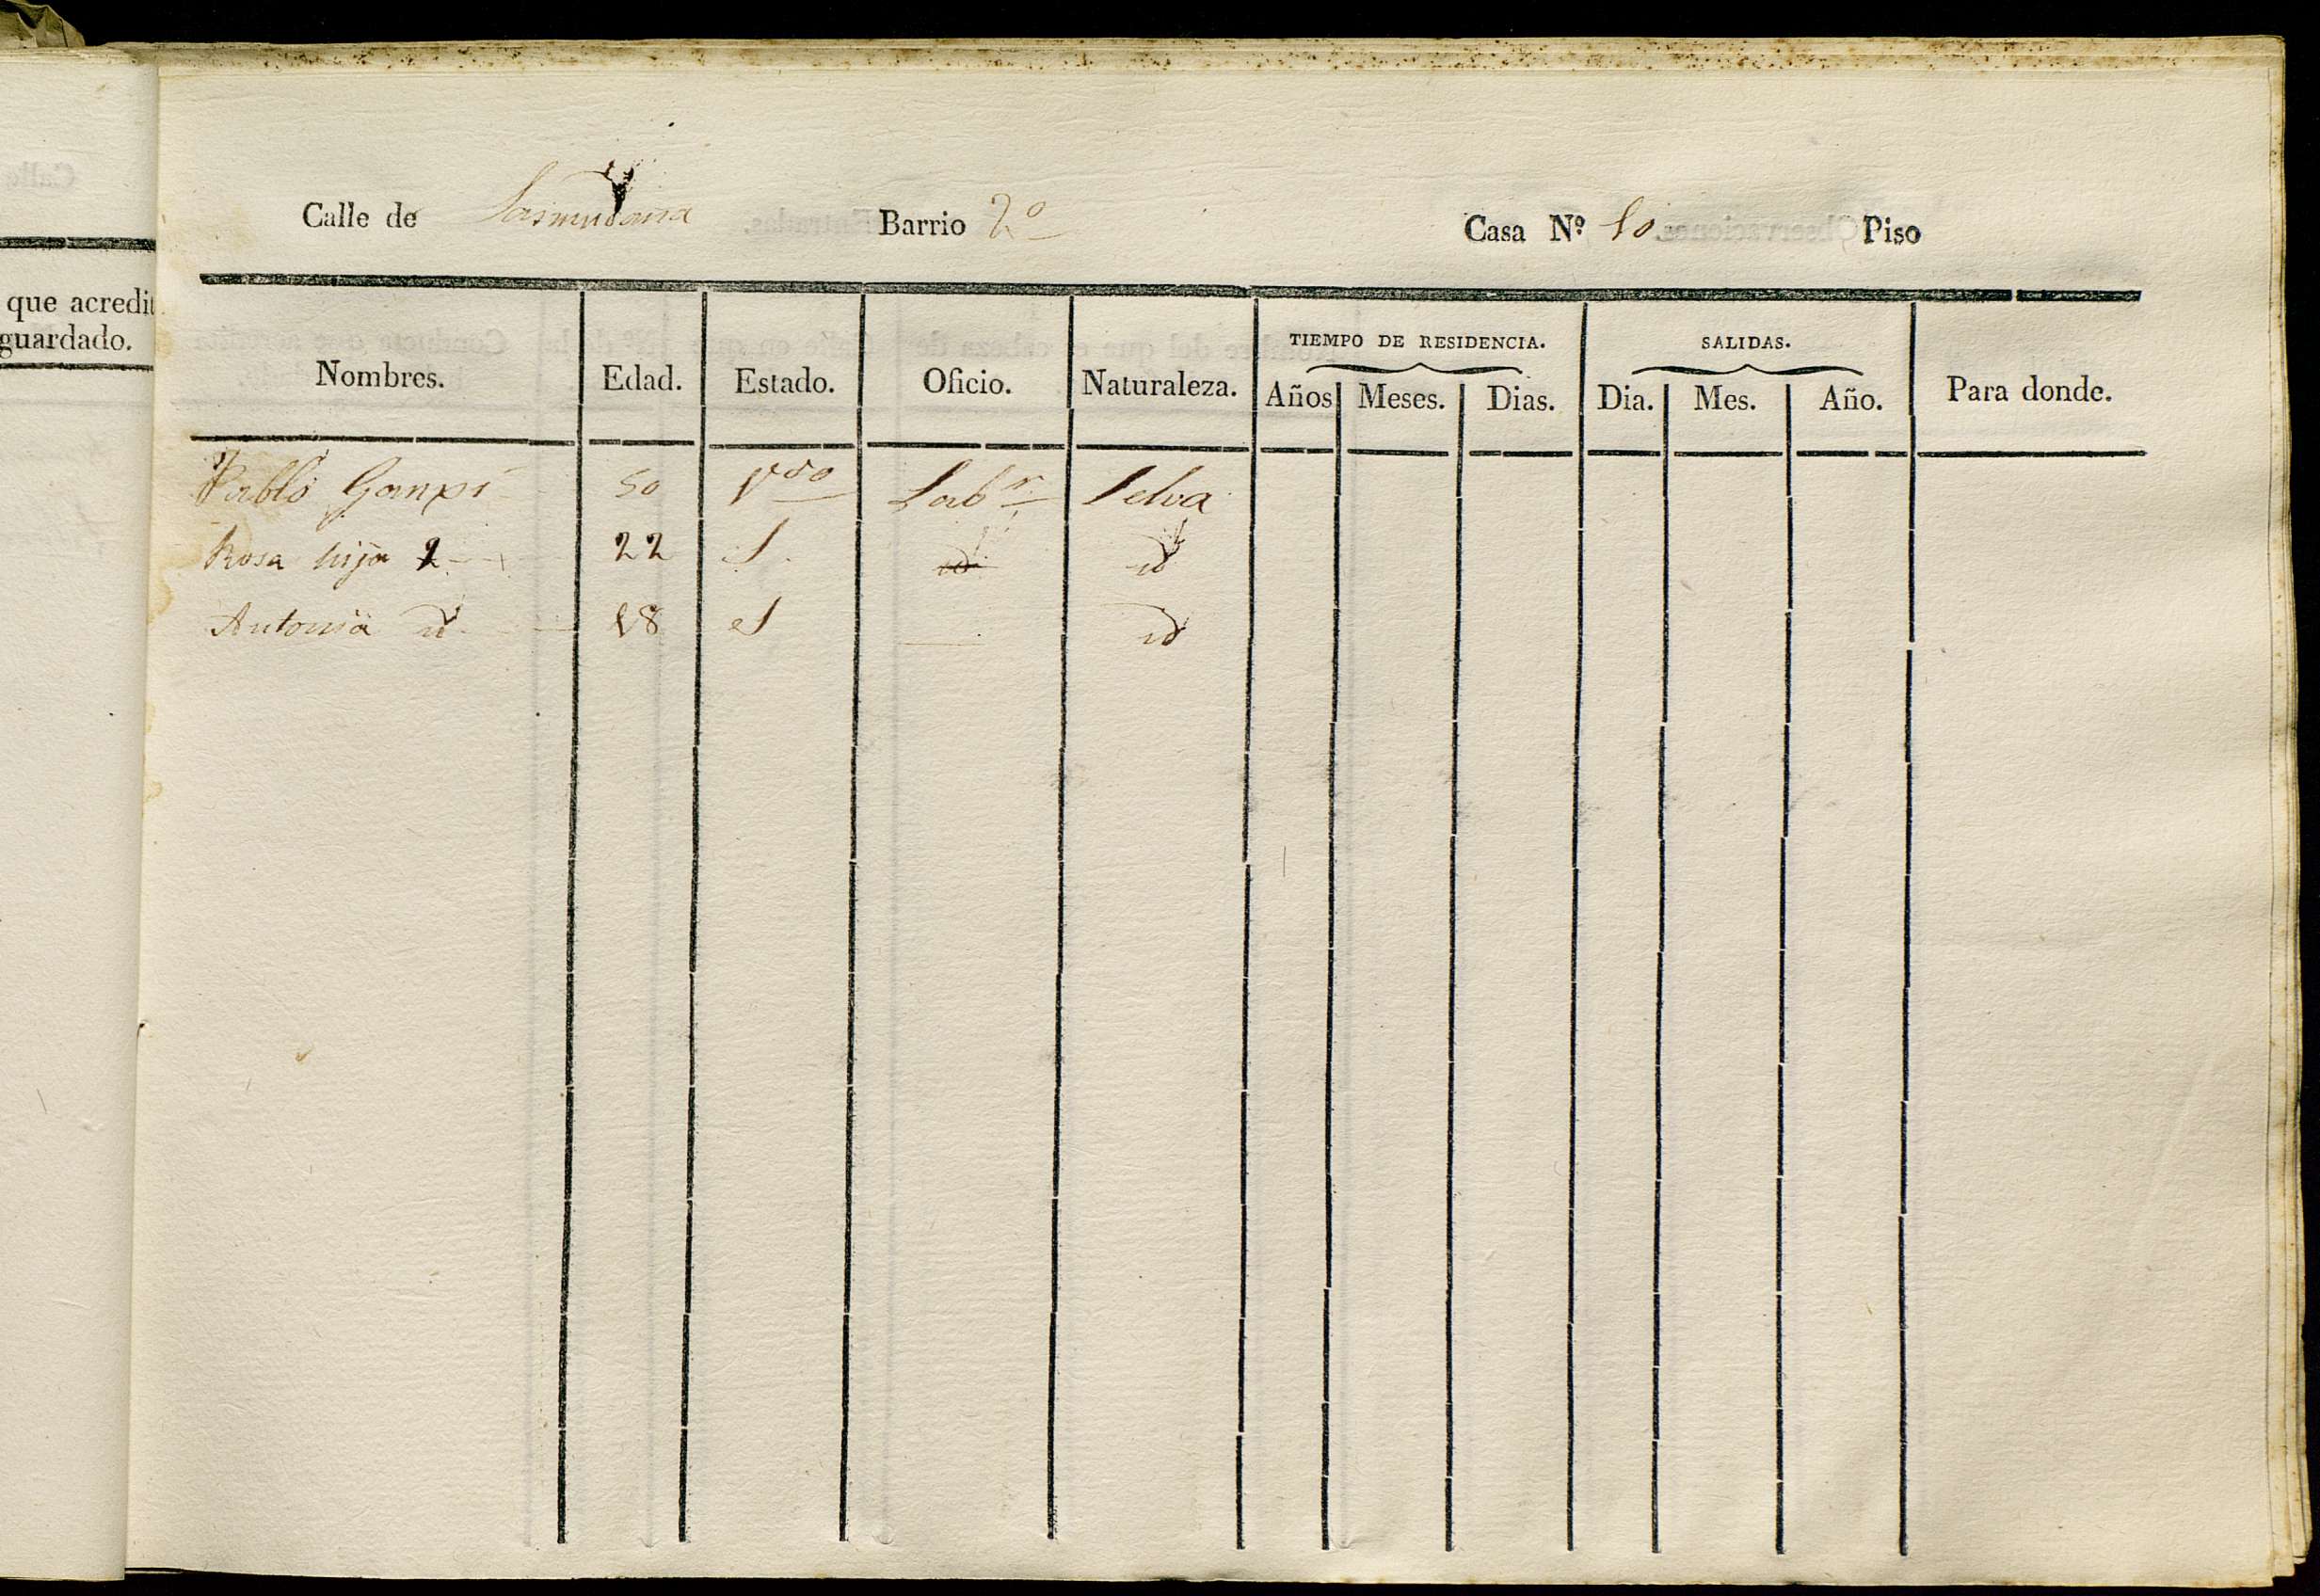 que acredit
guardado.
Calle de Lasmudaina Barrio 2º Casa Nº 10 Piso
Nombres. Edad. Estado. Oficio. Naturaleza. TIEMPO DE RESIDENCIA. SALIDAS. Para donde.
Años Meses. Dias. Dia. Mes. Año.
Pablo Ganpi 50 Vdo Labr Selva
Rosa hija 22 S. id id
Antonia id 18 S id